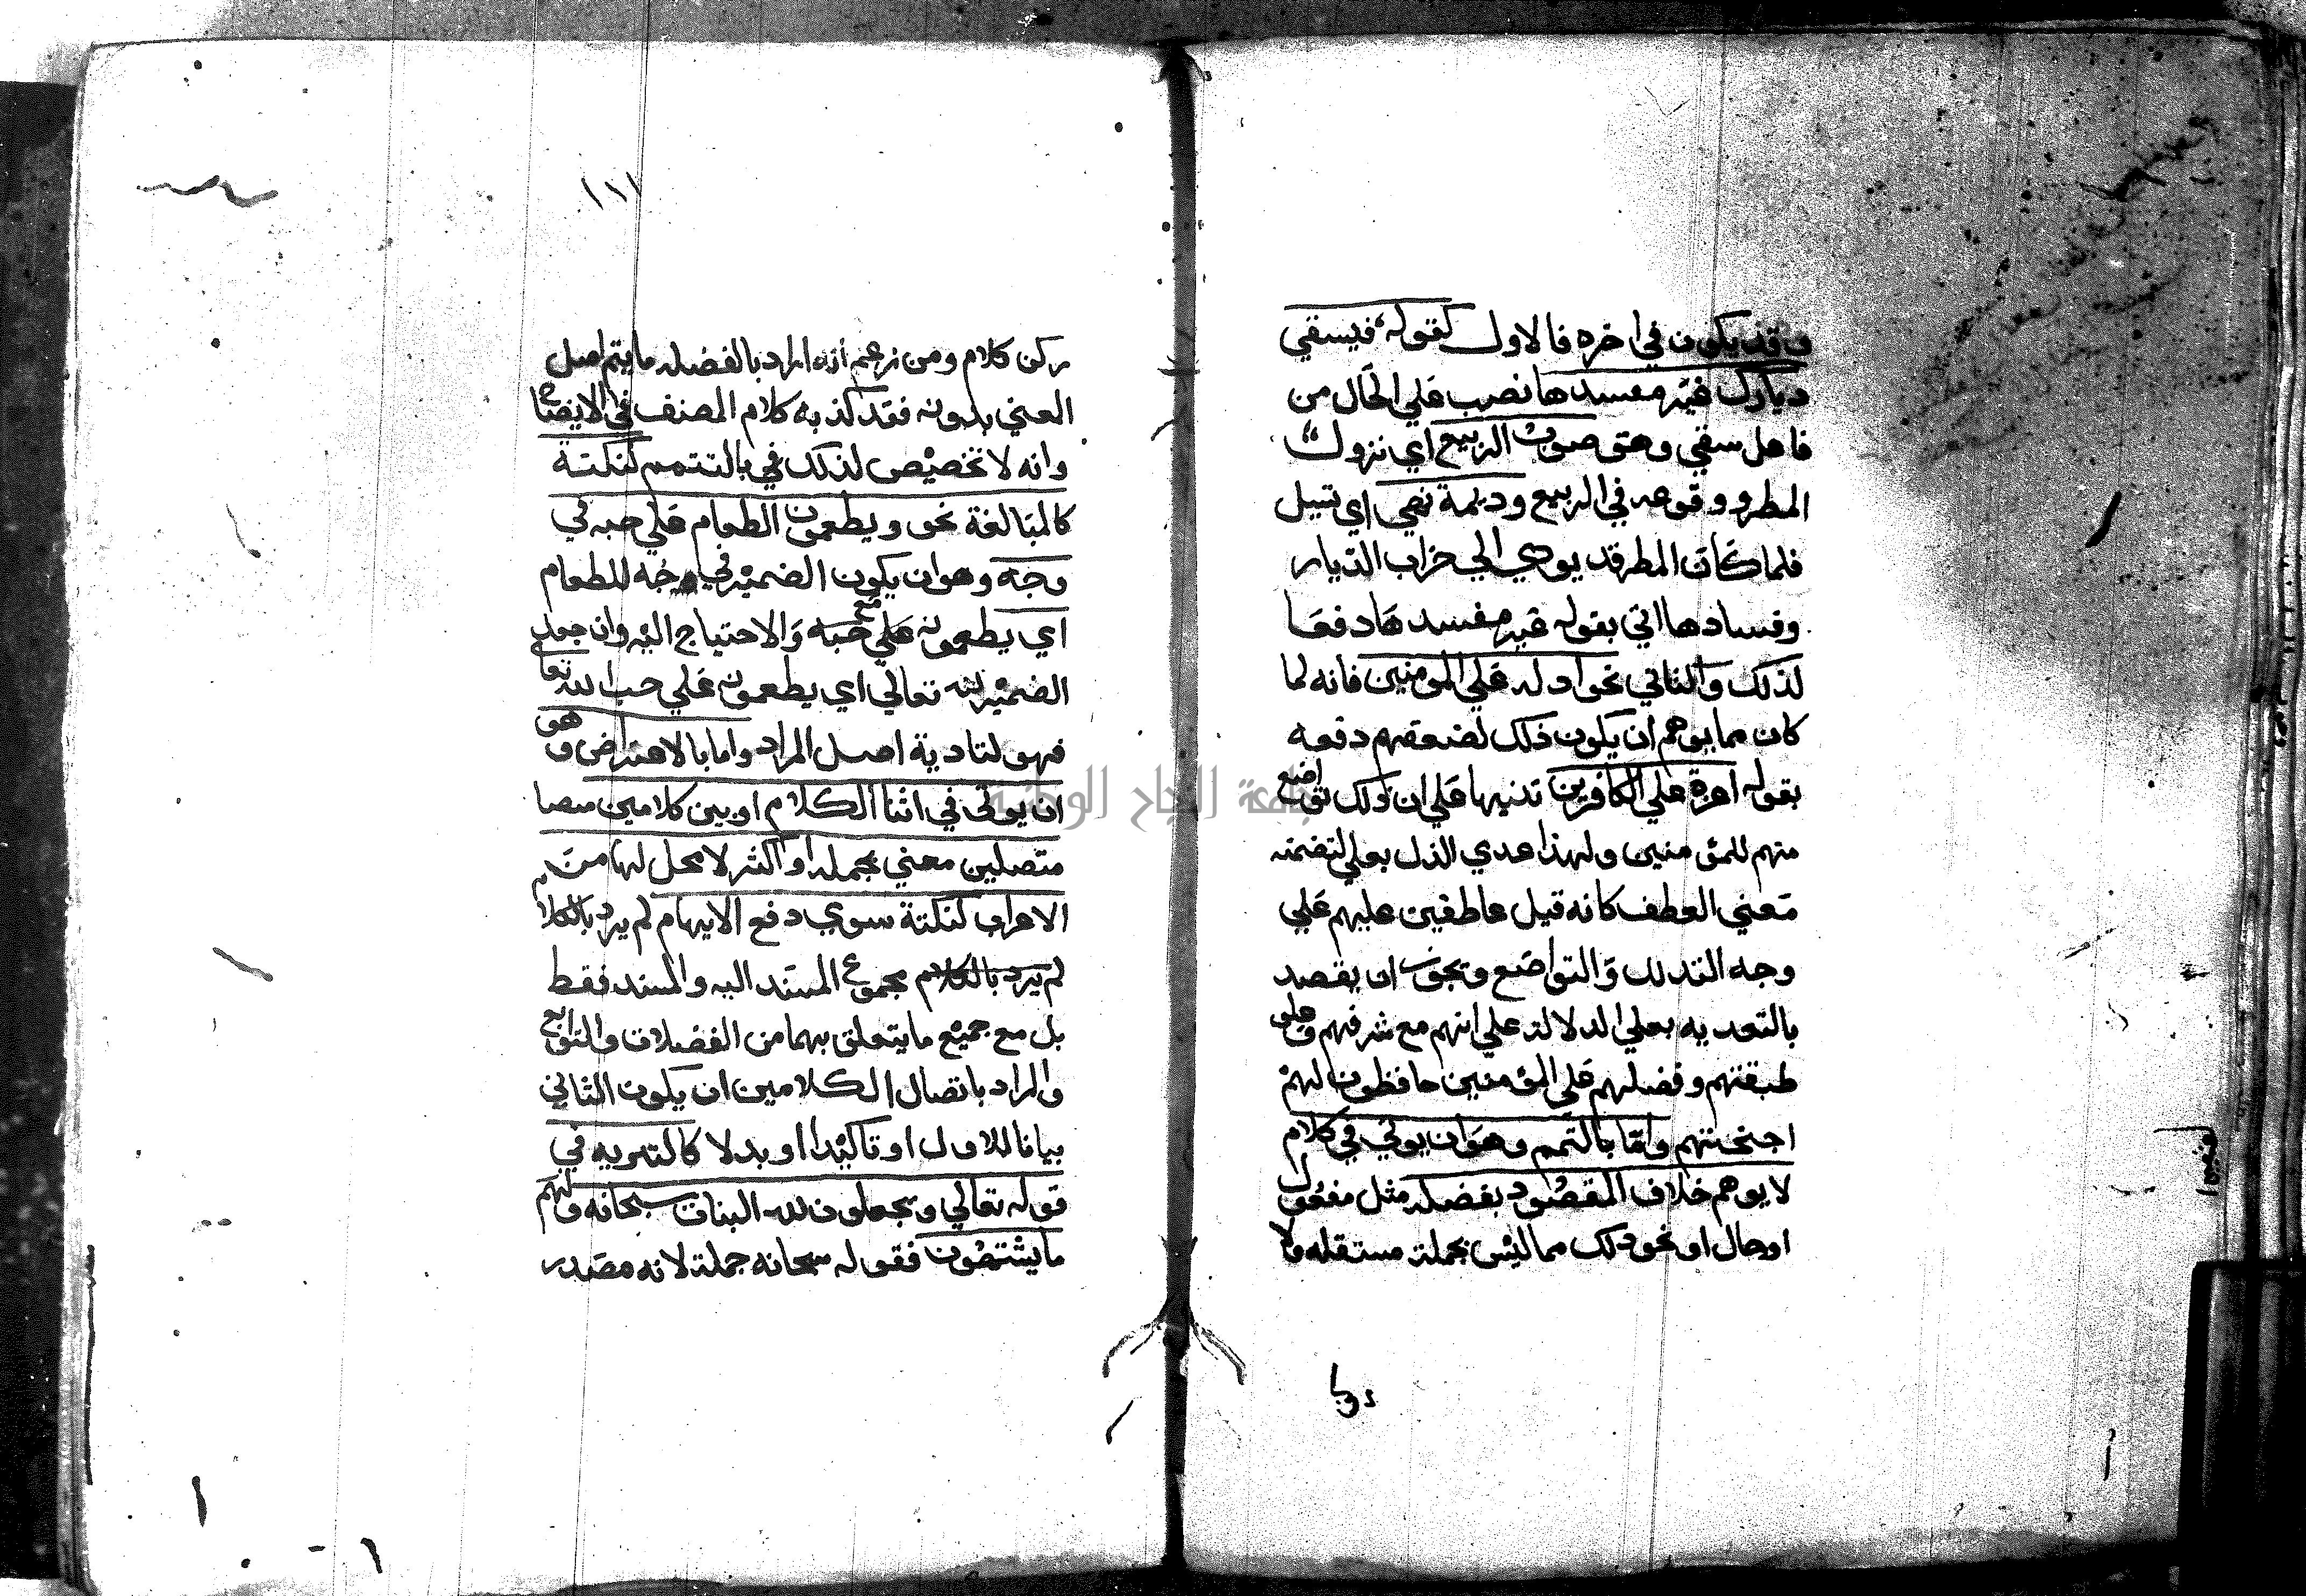 وقد يكون في اخره فالاول كقوله فيسقي
ديارك غير مفسدها نصب علي الحال من
فاعل سقي وهو صوب الربيع اي نزول
المطر ووقوعه في الربيع وديمة تهمي اي تسيل
فلما كان المطر قد يوصي الي خراب الديار
وفسادها اتي بقوله غير مفسدها دفعا
لذلك والثاني نحو اذلة علي المومنين فانه لما
كان مما يوهم ان يكون ذلك لضعفهم دفعه
بقوله اعزة علي الكافرين تنبيها علي ان ذلك تواضع
منهم للمؤمنين ولهذا عدي الذل بعلي لتضمنه
معني العطف كانه قيل عاطفين عليهم علي
وجه التذلل والتواضع ويجوز ان يقصد
بالتعديه بعلي الدلالة علي انهم مع شرفهم وعلو
طبقتهم وفضلهم علي المؤمنين حافظون لهم
اجنحتهم واما بالتتميم وهو ان يوتي في كلام
لا يوهم خلاف المقصود بفضلة مثل مفعول
او حال او نحو ذلك مما ليس بجملة مستقله ولا
ركن كلام ومن زعم انه اراد بالفضله ما يتم اصل
المعني بدونه فقد كذبه كلام المصنف في الايضاح
وانه لا تخصيص لذلك في بالتتميم لنكتة
كالمبالغة نحو ويطعمون الطعام علي حبه في
وجه وهو ان يكون الضمير في حبه للطعام
اي يطعمونه علي مع حبه والاحتياج اليه وان جعل
الضمير لله تعالي اي يطعمونه علي حب الله تعا
فهو لتادية اصل المراد واما بالاعتراض وهو
ان يوتي في اثنا الكلام او بين كلامين متصا
متصلين معني بجملة او اكثر لا محل لها من
الاعراب لنكتة سوي دفع الايهام لم يرد بالكلام
لم يرد بالكلام مجموع المسند اليه والمسند فقط
بل مع جميع ما يتعلق بهما من الفضلات والتوابع
والمراد باتصال الكلامين ان يكون الثاني
بيانا للاول او تاكيدا او بدلا كالتنزيه في
قوله تعالي ويجعلون لله البنات سبحانه ولهم
ما يشتهون فقوله سبحانه جملة لانه مصدر
جامعة النجاح الوطنية